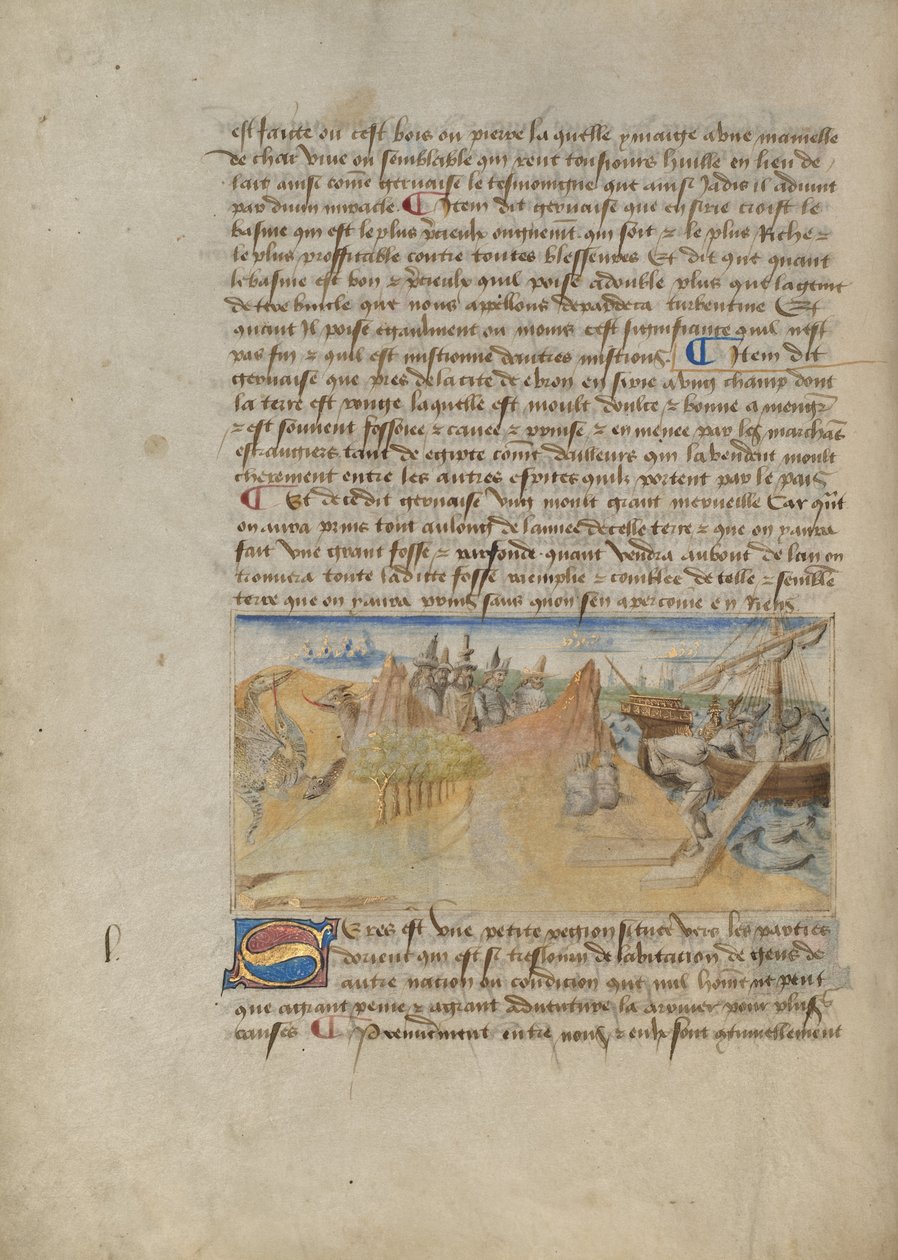 est faicte ou cest bois ou pierre la quelle ymaige a vne mamelle
de char viue ou semblable qui rent tousiours huille en lieu de
lait ainsi come geruaise le tesmoingne que ainsi jadis il aduint
par diuin miracle. Item dit geruaise que en sirie croist le
basme qui est le plus p̃cieulx onguement qui soit ⁊ le plus Riche ⁊
le plus proffitable contre toutes blesseures Et dit que quant
le basme est bon ⁊ p̃cieulx quil poise a double plus que la geme
de terebincle que nous appellons depardeca turbentine Et
quant Il poise egaulment ou moins cest signifiance quil nest
pas fin ⁊ quil est mistionne dautres mistions. Item dit
geruaise que pres de la cite de ebron en sirie a vng champ dont
la terre est rouge laquelle est moult doulce ⁊ bonne a mengr̃
⁊ est souuent fossoiee ⁊ cauee ⁊ prinse ⁊ en menee par les marchãs
estrangiers tant de egipte com̃e dailleurs qui la vendent moult
chierement entre les autres espices quilz portent par le pais
Et de ce dit geruaise vng moult grant merueille Car qũt
on aura prins tout au long de lannee de celle terre ⁊ que on y aura
fait vne grant fosse ⁊ parfonde quant vendra au bout de lan on
trouuera toute la ditte fosse remplie ⁊ comblee de telle ⁊ semblẽ
terre que on y aura prins sans quon sen apercoiue en Riens
Seres est vne petite region situee vers les parties
dorient qui est si tresloing de labitacion de gens de
autre nacion ou condicion que nul hom̃e ne peut
que a grant peine ⁊ a grant aduenture la arriuer pour plus̃s
causes Premierement entre nous ⁊ eulx sont ꝯtinuellement